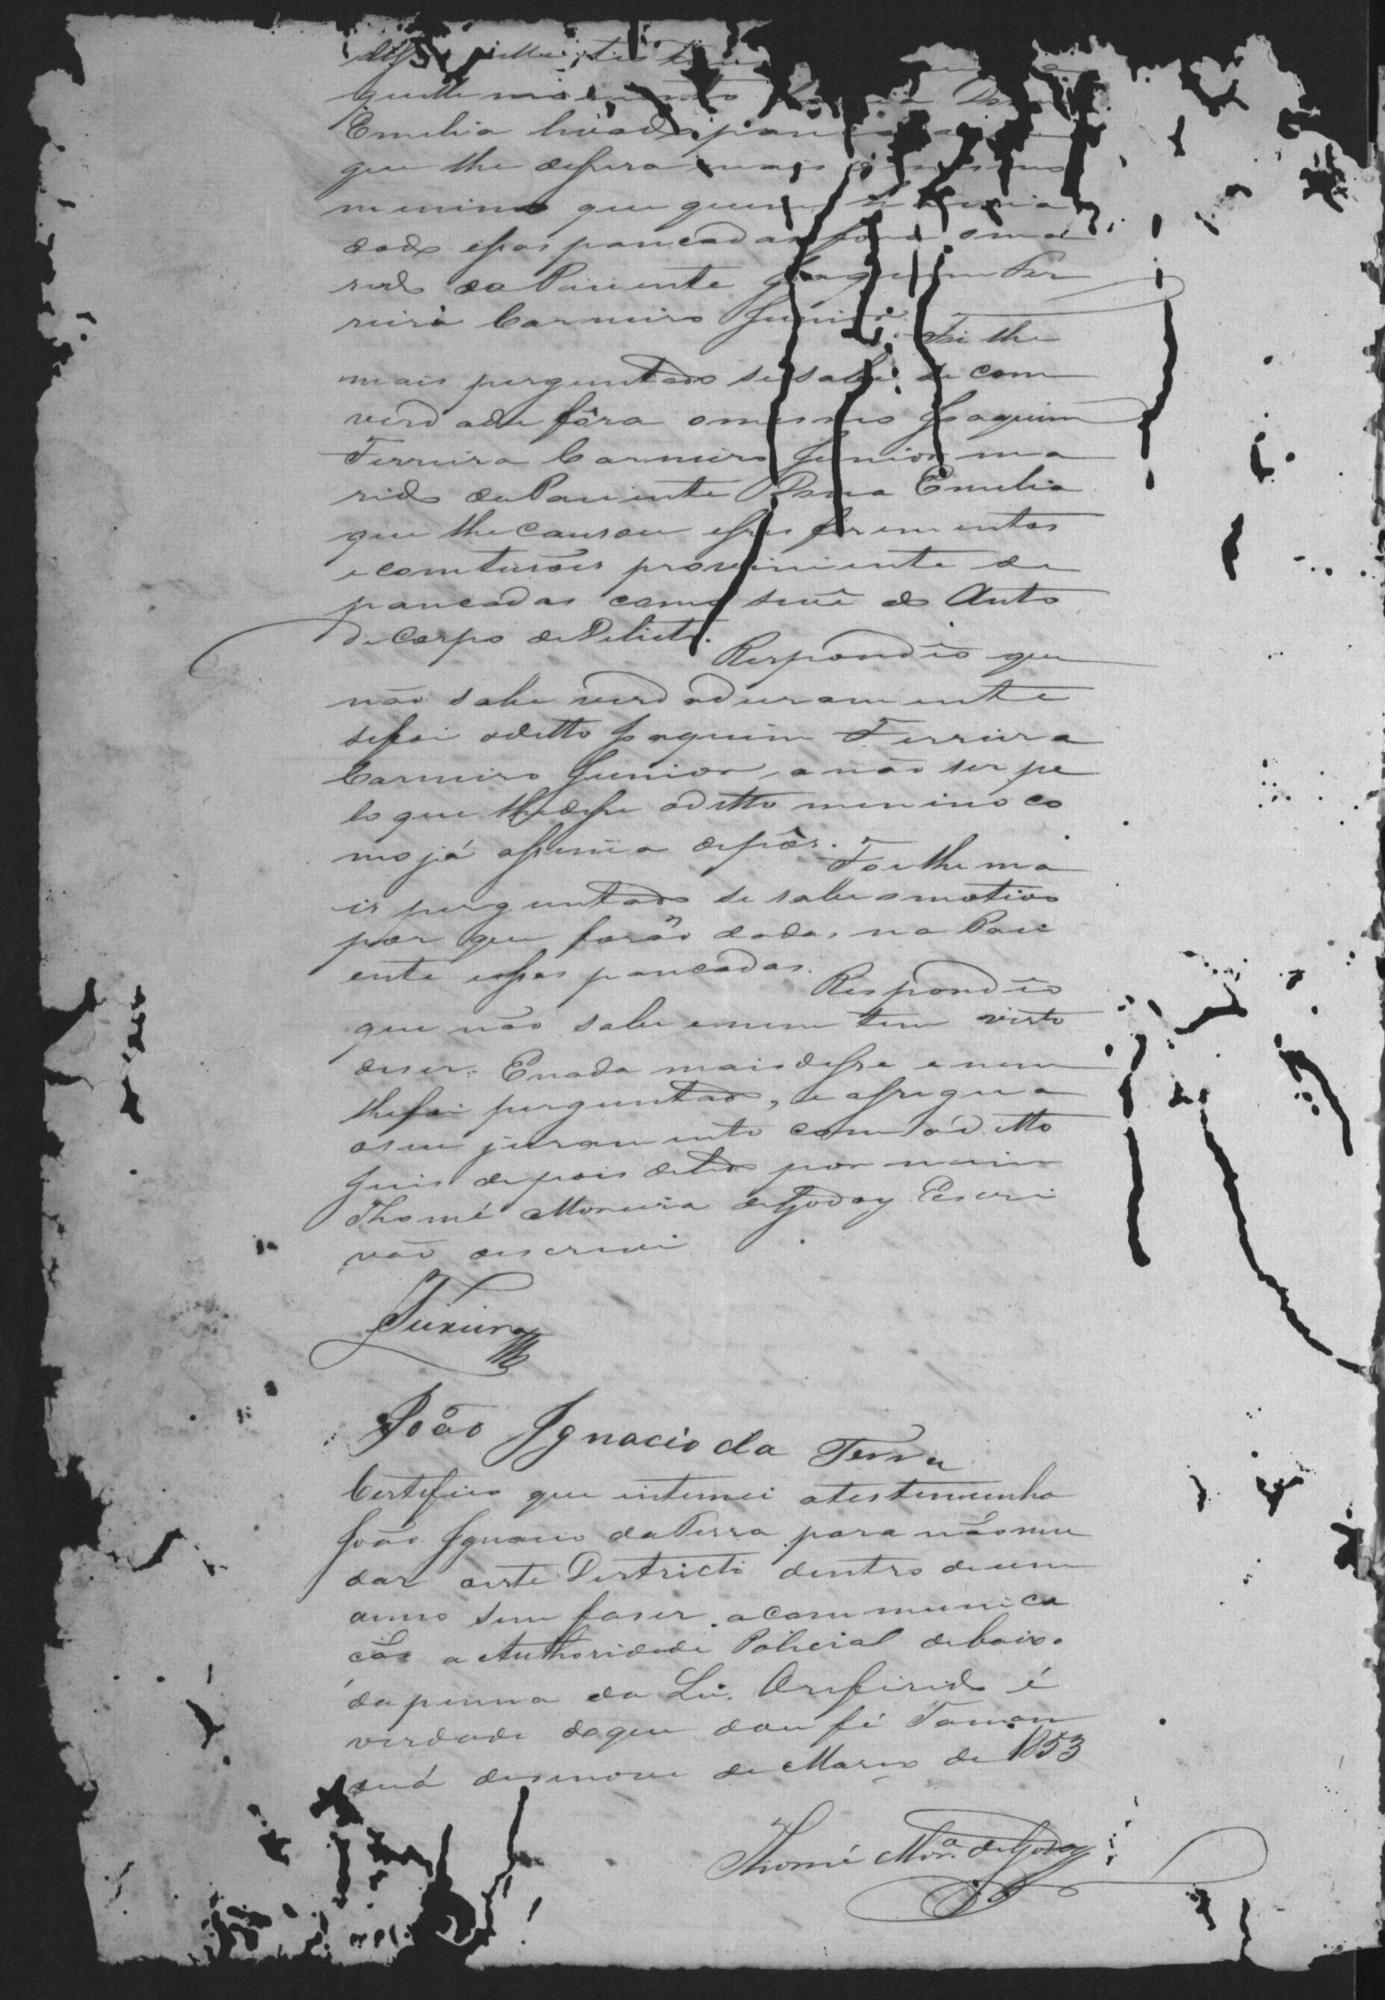 quelle momento Dona
Emilia levado pancadas
que lhe dissera mais o mesmo
menino que quem
dado essas pancadas fora o ma
rido da Paciente Joaquim Fer
reira Carneiro Junior. Foi lhe
mais perguntado se sabe se com
verdade fôra o mesmo Joaquim
Ferreira Carneiro Junior ma
rido da Paciente Dona Emilia
que lhe causou esses ferimentos
e contusões proviniente de
pancadas como se vê do Auto
de Corpo de Delicto.
Respondêo que
não sabe verdadeiramente
se foi o ditto Joaquim Ferreira
Carneiro Junior, a não ser pe
lo que lhe disse o ditto menino co
mo já assima depôs. Foi lhe ma
is perguntado se sabe o motivo
por que forão dadas na Paci
ente essas pancadas.
Respondêo
que não sabe e nem tem visto
diser. E nada mais disse e nem
lhe foi perguntado, e assigna
o seu juramento com o ditto
Juis depois de lido por mim
Thomé Moreira de Godoy Escri
vão o escrevi
Teixeira
João Ignacio da Terra
Certifico que intimei a testemunha
João Ignacio da Terra para não mu
dar deste Districto dentro de um
anno sem faser a communica
ção a Authoridade Policial debaixo
da penna da Lei. O referido é
verdade do que dou fé Taman
duá desenove de Março de 1853
Thomé Mor.a de Godoy